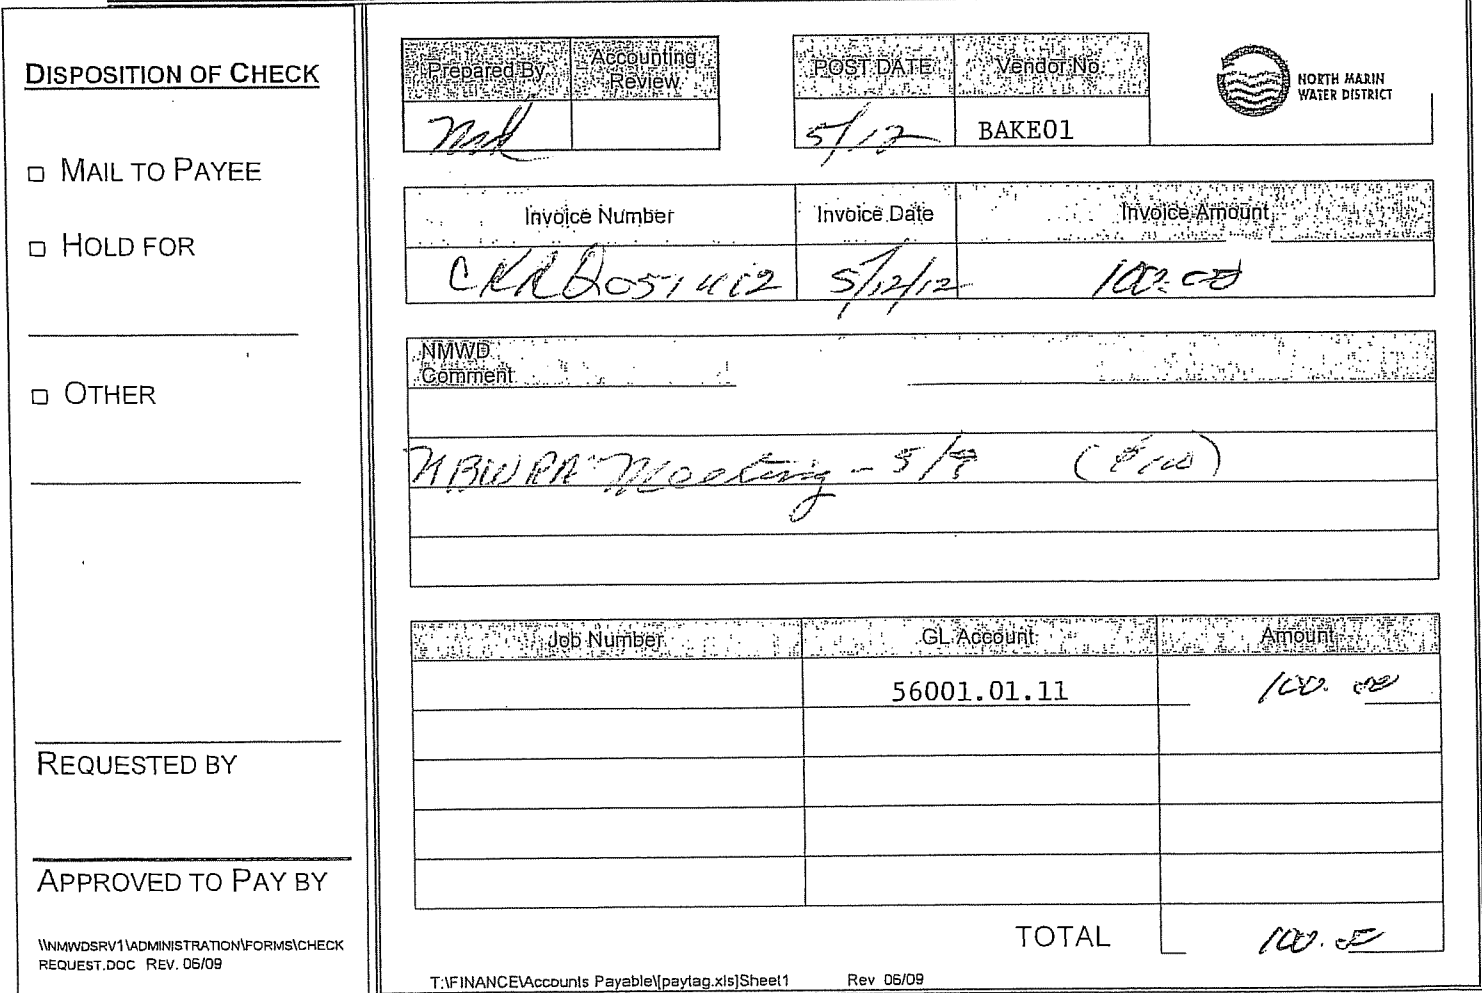 DISPOSITION OF CHECK
□ MAIL TO PAYEE
□ HOLD FOR
□ OTHER
REQUESTED BY
APPROVED TO PAY BY
\\NMWDSRV1\ADMINISTRATION\FORMS\CHECK
REQUEST.DOC REV. 06/09
Prepared By Accounting Review
POST DATE Vendor No.
5/12 BAKE01
NORTH MARIN
WATER DISTRICT
Invoice Number Invoice Date Invoice Amount
5/12/12 100.00
NMWD
Comment
NBWRA Meeting - 5/9 ($100)
Job Number GL Account Amount
56001.01.11 100.00
TOTAL 100.00
T:\FINANCE\Accounts Payable\[paytag.xls]Sheet1 Rev 06/09